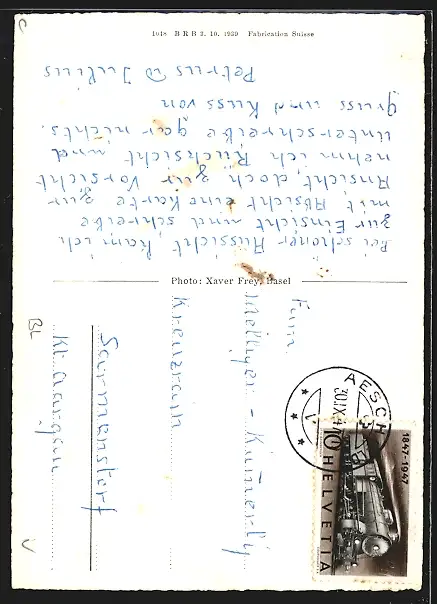 1018 B R B 2. 10. 1939 Fabrication Suisse
Bei schöner Aussicht, kam ich
zur Einsicht und schreibe
mit Absicht eine Karte zur
Ansicht, doch zur Vorsicht
nehm ich Rücksicht und
unterschreibe gar nichts.
Gruss und Kuss von
Petrus & Julius
Photo: Xaver Frey, Basel
Fam.
Kreuzrain
Sarmenstorf
Kt. Aargau
BL
AESCH
30.IX.47
1847-1947
10
HELVETIA